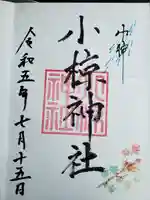 小椋神社
令和五年七月十五日